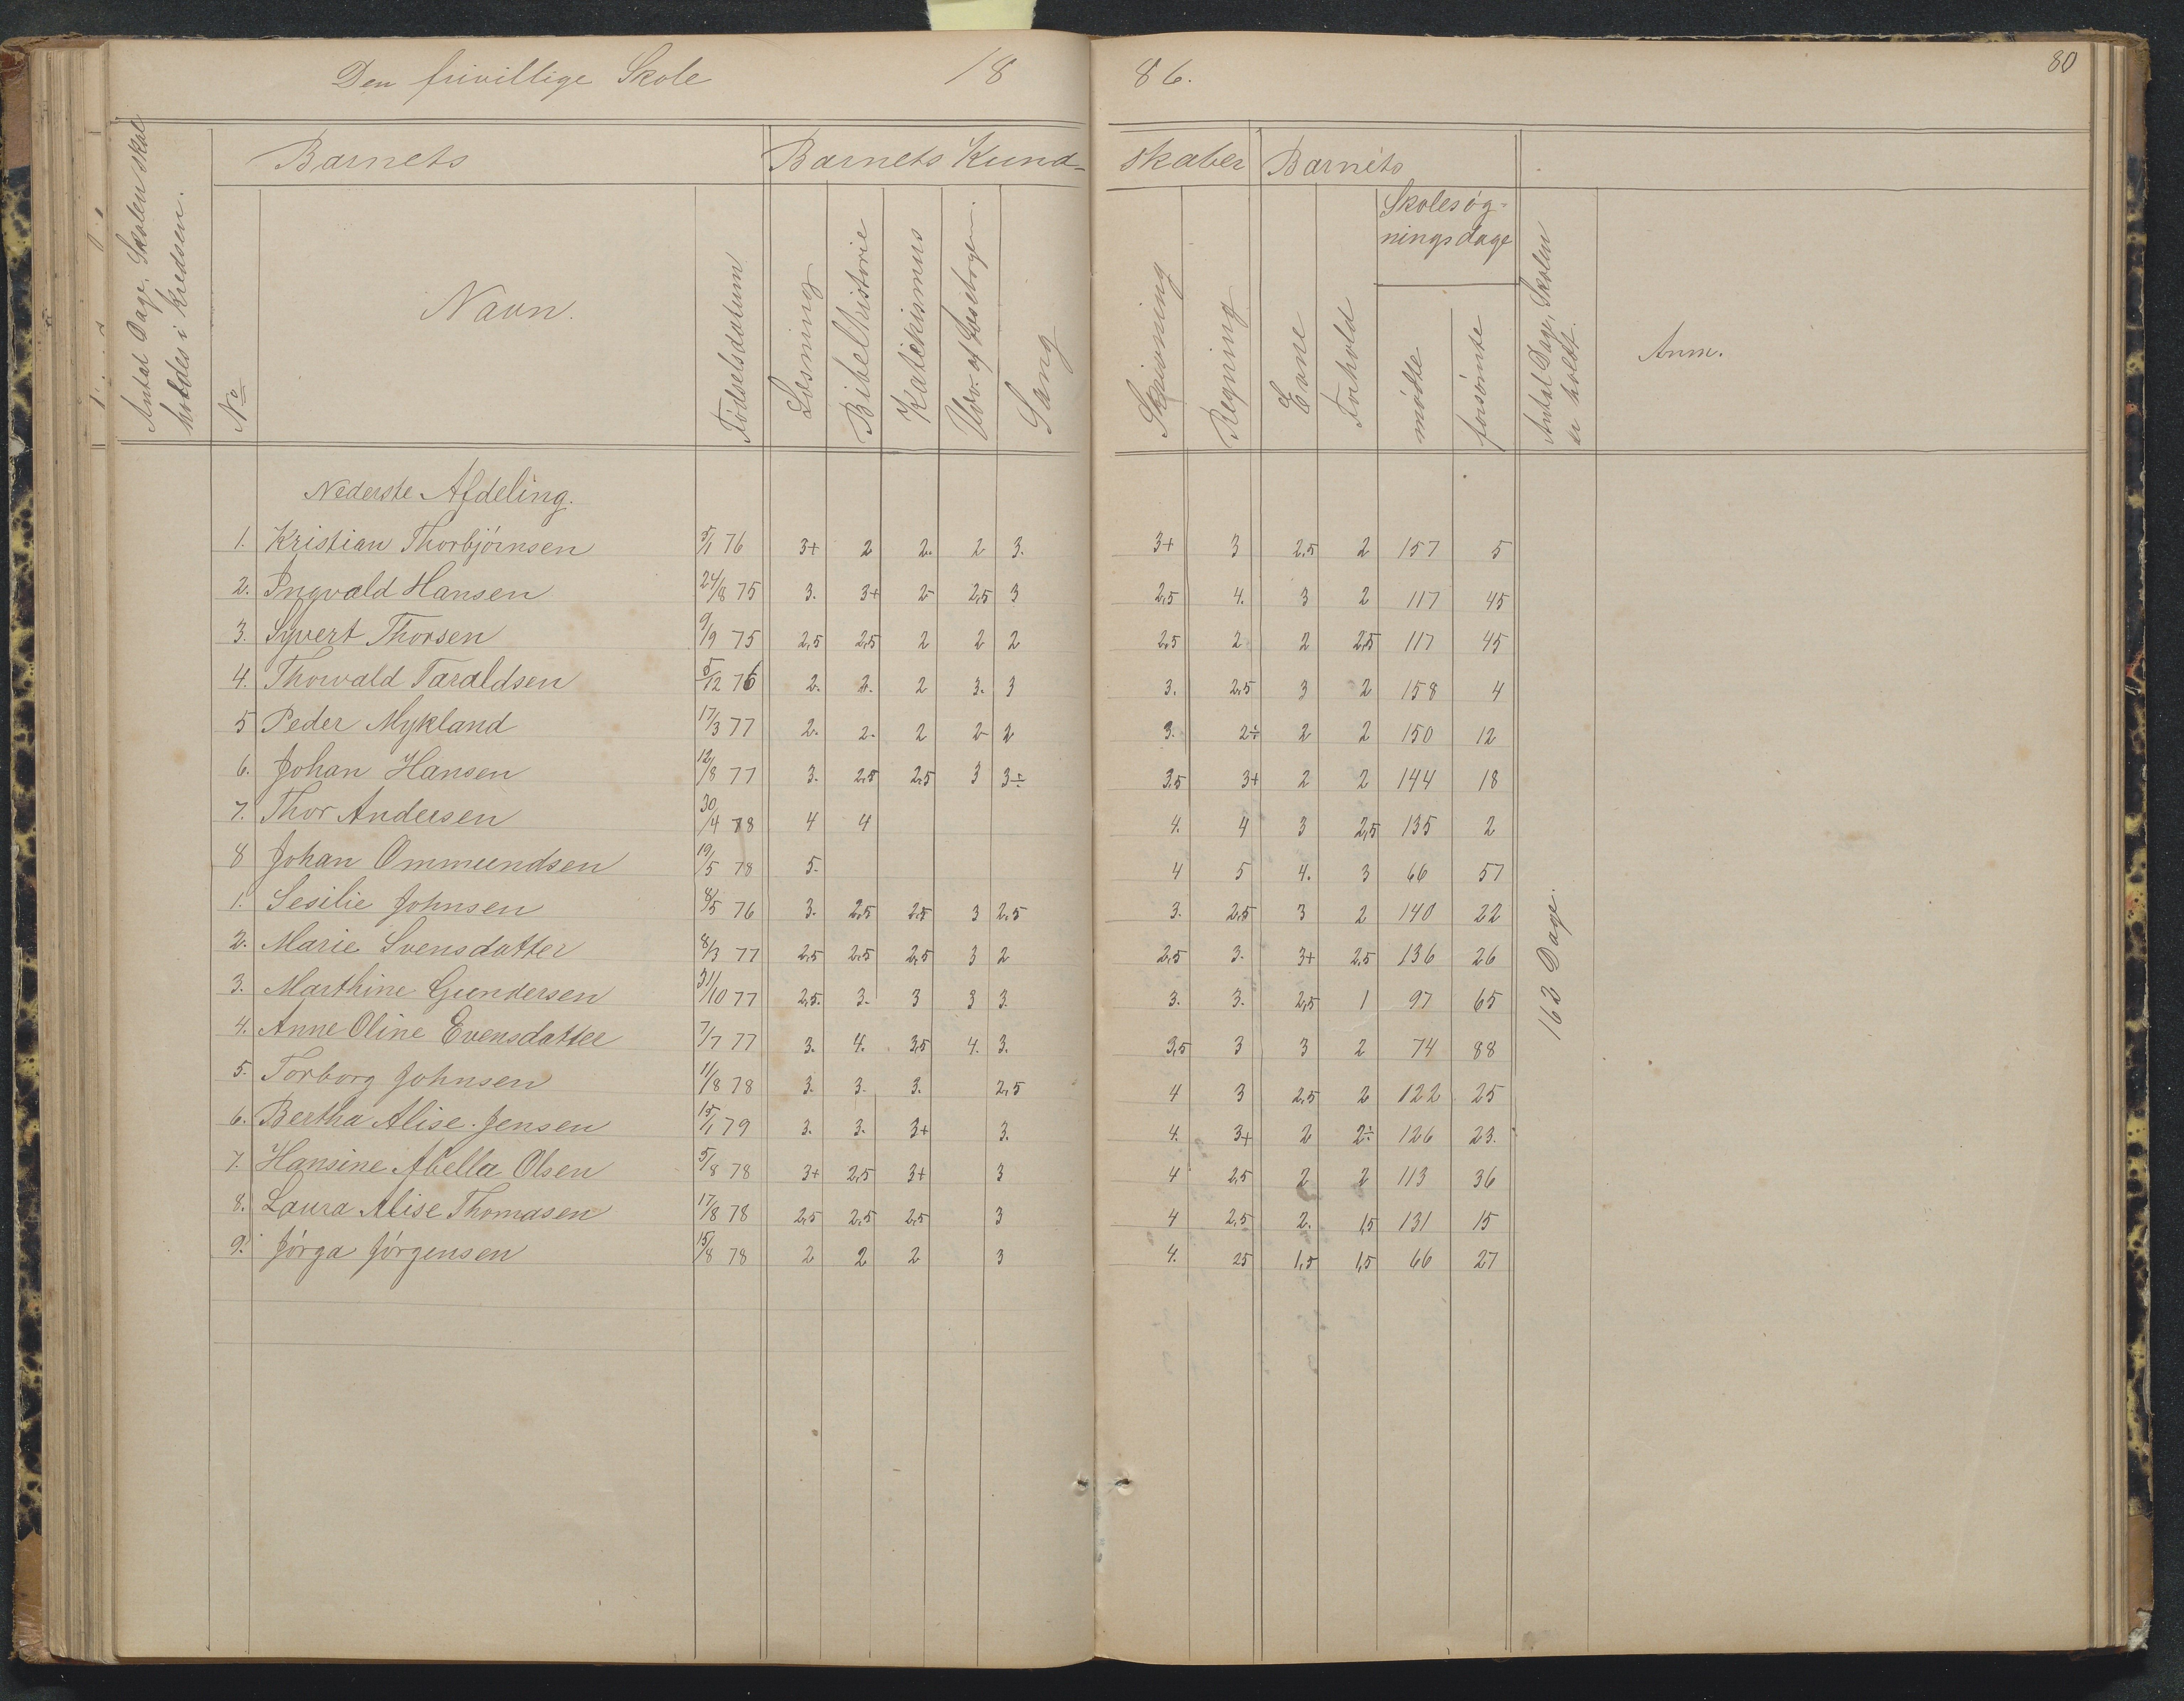 Den frivillige Skole 18 86. 80
Barnets Barnets Kund- skaber Barnets
Antal Dage, Skolen skal
holdes i Kredsen.
No
Navn.
Fødselsdatum
Læsning
Bibelhistorie
Katekismus
Udv. af Læsebogen.
Sang
Skrivning
Regning
Evne
Forhold
Skolesøg-
ningsdage
mødte
forsømte
Antal Dage, Skolen
er holdt.
Anm.
Nederste Afdeling.
1. Kristian Thorbjørnsen 5/1 76 3+ 2 2. 2 3. 3+ 3 2,5 2 157 5
2. Ingvald Hansen 24/8 75 3. 3+ 2- 2,5 3 2,5 4. 3 2 117 45
3. Syvert Thorsen 9/9 75 2,5 2,5 2 2 2 2,5 2 2 2,5 117 45
4. Thorvald Taraldsen 5/12 76 2. 2. 2 3. 3 3. 2,5 3 2 158 4
5 Peder Mykland 17/3 77 2. 2. 2 2- 2 3. 2÷ 2 2 150 12
6. Johan Hansen 12/8 77 3. 2,5 2,5 3 3÷ 3,5 3+ 2 2 144 18
7. Thor Andersen 30/4 78 4 4 4. 4 3 2,5 135 2
8 Johan Ommundsen 19/5 78 5. 4 5 4. 3 66 57
1. Sesilie Johnsen 8/5 76 3. 2,5 2,5 3 2,5 3. 2,5 3 2 140 22
2. Marie Svensdatter 8/3 77 2,5 2,5 2,5 3 2 2,5 3. 3+ 2,5 136 26
3. Marthine Gundersen 31/10 77 2,5. 3. 3 3 3. 3. 3. 2,5 1 97 65
4. Anne Oline Evensdatter 7/7 77 3. 4. 3,5 4. 3. 3,5 3 3 2 74 88
5. Torborg Johnsen 11/8 78 3. 3. 3. 2,5 4 3 2,5 2 122 25
6. Bertha Alise Jensen 15/1 79 3. 3. 3+ 3. 4. 3+ 2 2÷ 126 23.
7. Hansine Abella Olsen 5/8 78 3+ 2,5 3+ 3 4 2,5 2 2 113 36
8. Laura Alise Thomasen 17/8 78 2,5 2,5 2,5 3 4 2,5 2. 1,5 131 15
9. Jørga Jørgensen 15/8 78 2 2 2 3 4. 25 1,5 1,5 66 27
162 Dage.